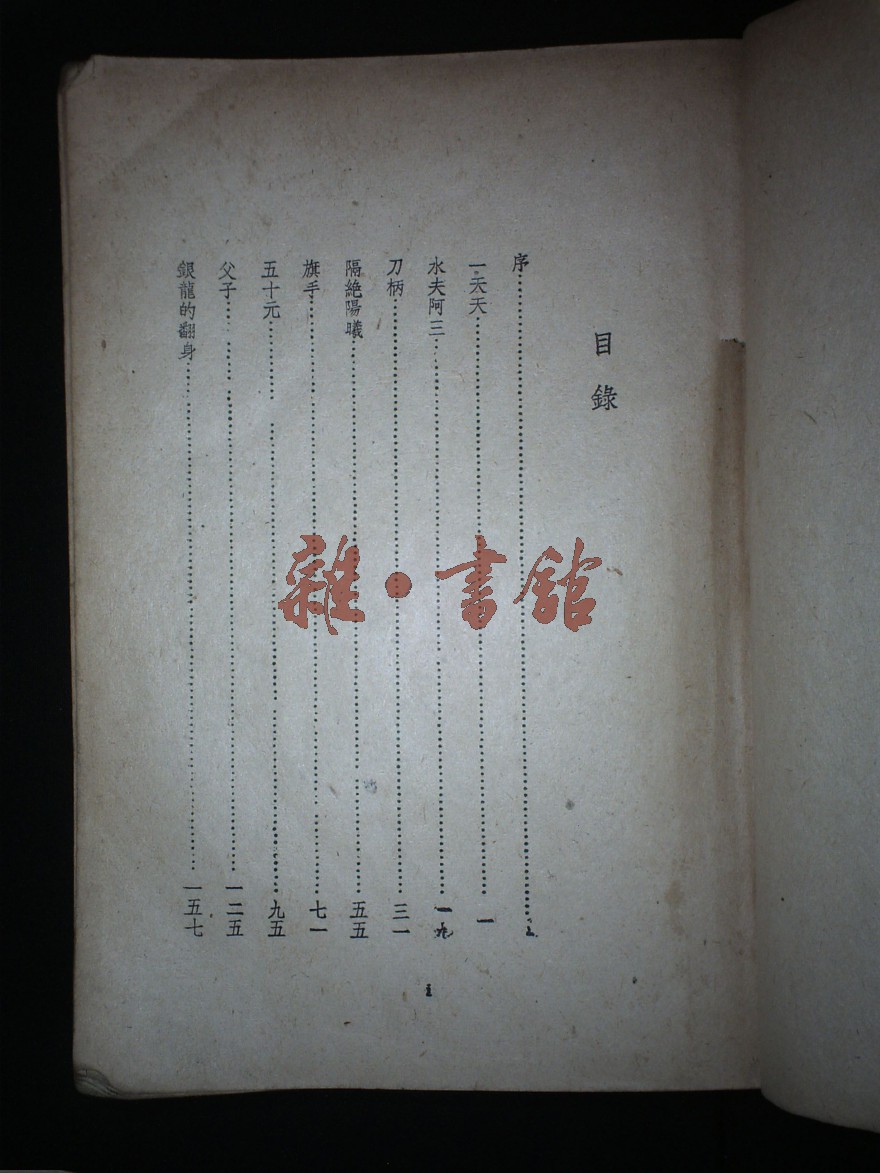 目錄
序
一天天……一
水夫阿三……一九
刀柄……三一
隔絶陽曦……五五
旗手……七一
五十元……九五
父子……一二五
銀龍的翻身……一五七
i
雜·書館